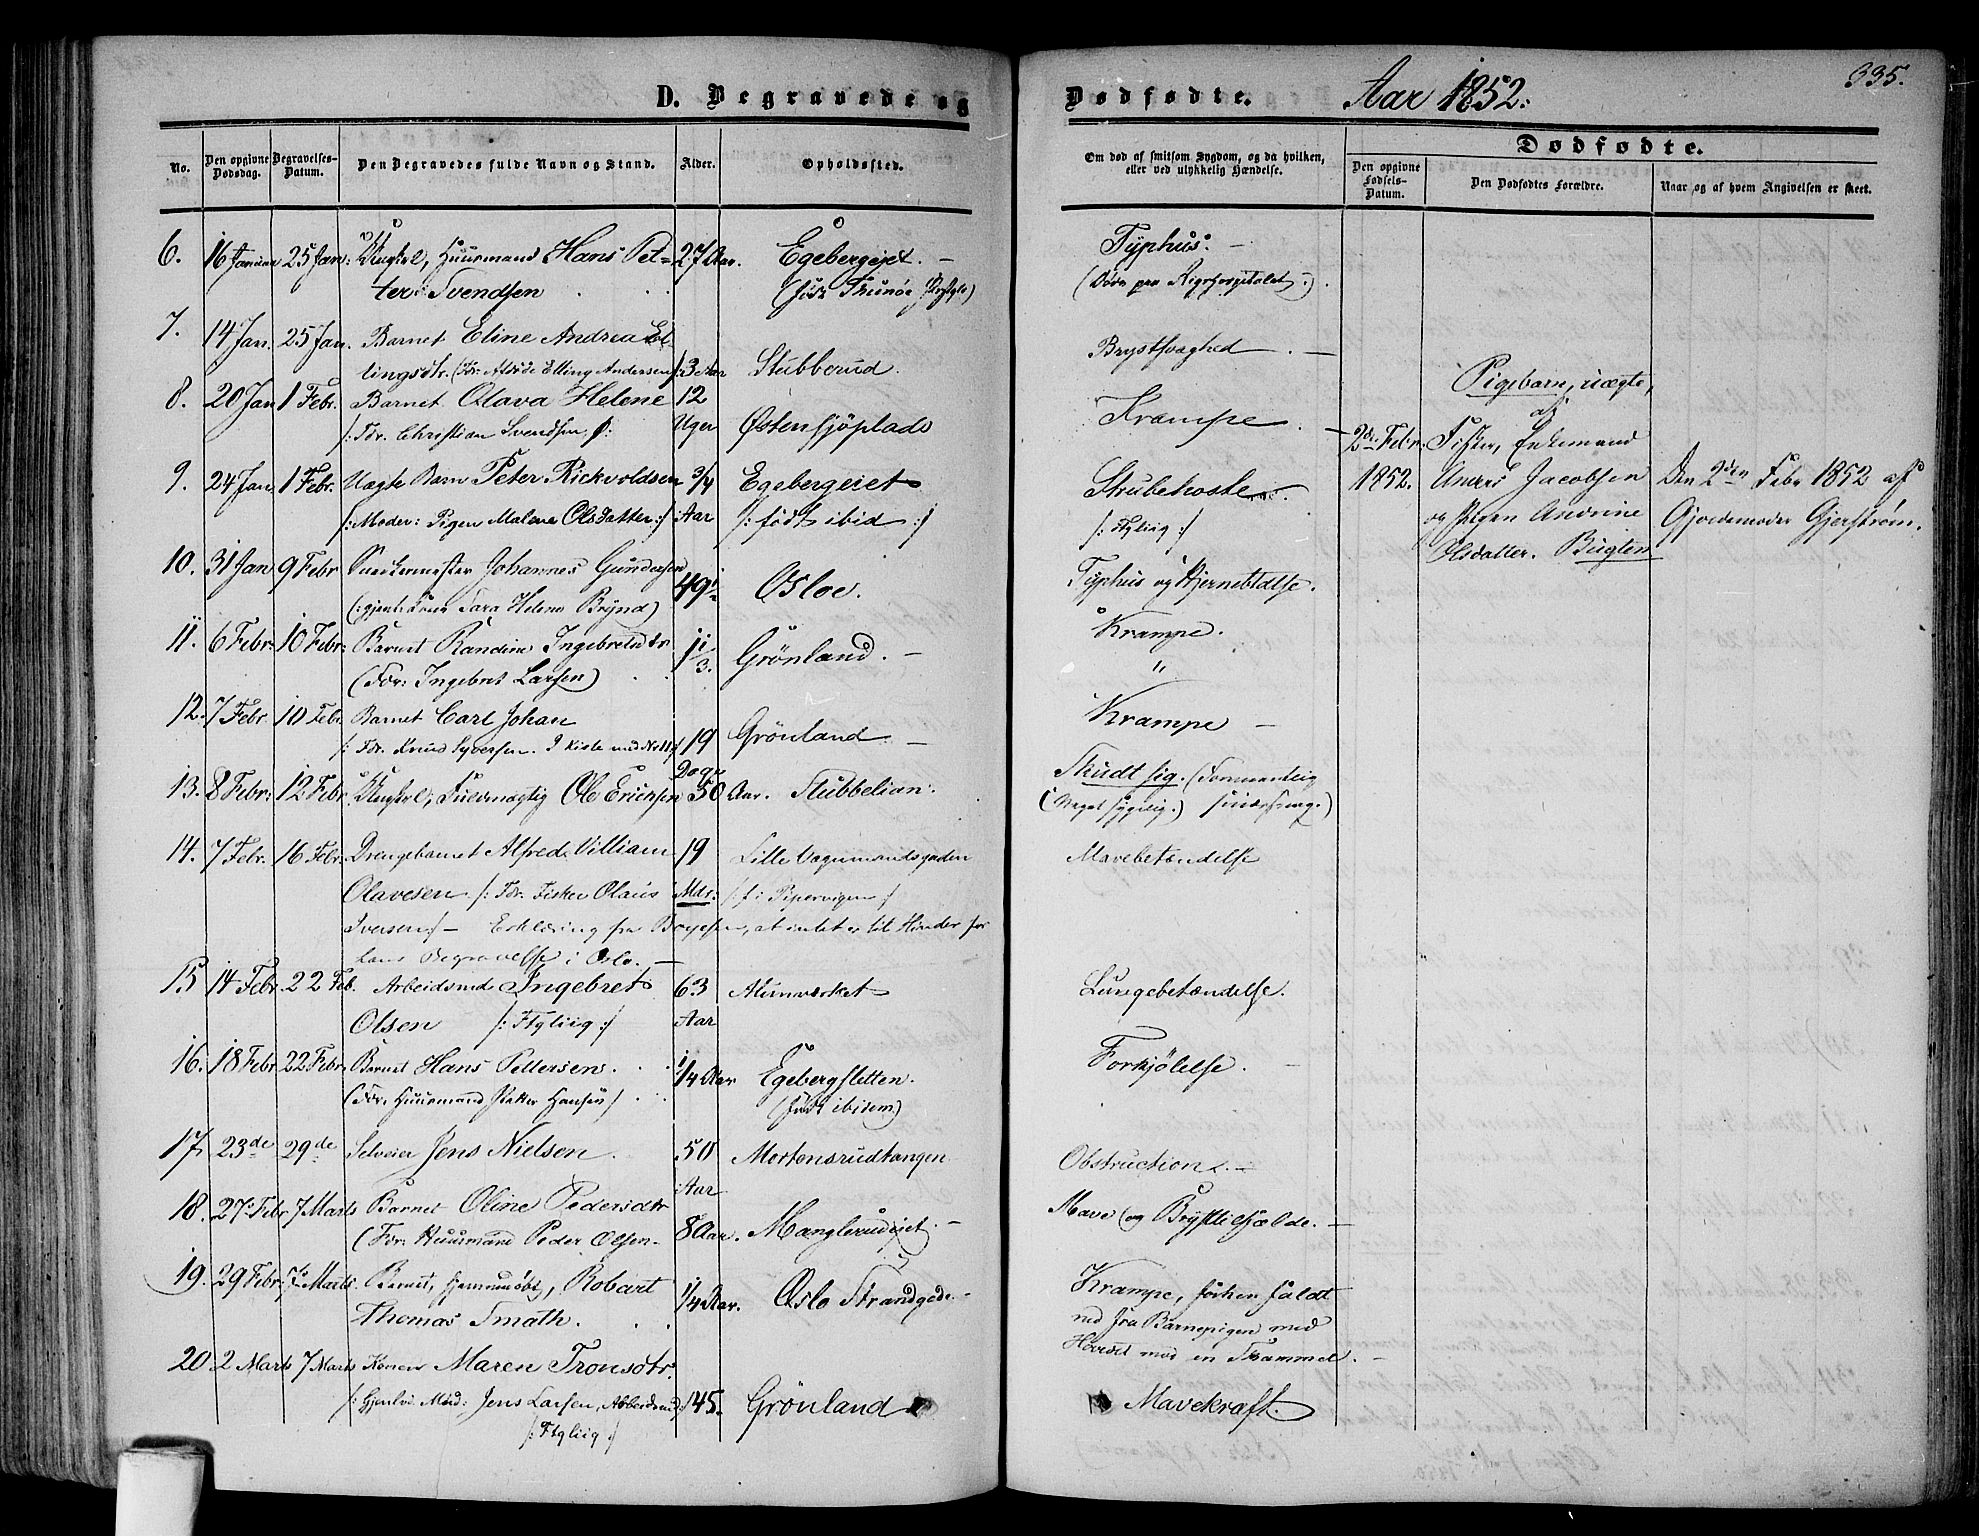 D. Begravede og
Dødfødte.
Aar 1852.
335.
No.
Den opgivne Dødsdag.
Begravelses-Datum.
Den Begravedes fulde Navn og Stand.
Alder.
Opholdssted.
Om død af smitsom Sygdom, og da hvilken,
eller ved ulykkelig Hændelse.
Dødfødte.
Den opgivne Fødsels-Datum.
Den Dødfødtes Forældre.
Naar og af hvem Angivelsen er skeet.
6. 16 Januar 25 Jan: Ungkl, Huusmand Hans Pet- 27 Aar. Egebergejet. — Typhus. —
ter Svendsen (født Thunøe
7. 14 Jan. 25 Jan. Barnet Eline Andrea El-
lingsdtr. (For: Elling Andersen 3 Aar Stubberud. Brystsvaghed. —
8. 20 Jan 1 Febr. Barnet Olava Helene 12
/: For. Christian Svendsen :/ Uger Østensjöplads Krampe. —
9. 24 Jan. 1 Febr. Uægte Barn Peter Rickvoldsen 3/4 Egebergeiet Strubehoste.
/: Moder: Pigen Malene Olsdatter :/ Aar /: født ibid :/ /: Ftgliig :/
10. 31 Jan 9 Febr Snedkermester Johannes Gundersen
(: gjenl. Enke Sara Helene Brynd) 49 Osloe. Typhus og Hjernebtdlse.
11. 6 Febr: 10 Febr: Barnet Randine Ingebretsdtr
(For: Ingebret Larsen) 1 1/3. Grönland. — Krampe.
"
12. 7 Febr. 10 Febr. Barnet Carl Johan
/: For. Knud Syversen. I Kiste med No 11 :/ 19 Grönland — Krampe —
Dage
13. 8 Febr: 12 Febr. Ungkrl, Ole Ericksen 50 Aar. Stubbelian. Skudt sig.
(Meget sygelig.)
14. 7 Febr. 16 Febr. Drengebarnet Alfred Villiam 19 Lille Vognmandsgaden Mavebetændelse
Olavesen /: For. Fisker Olaus Mdr: /: f i Pipervigen :/
Iversen :/ — Erklæring fra Boyesen, at intet er til Hinder for
hans Begravelse i Oslo. —
15 14 Febr. 22 Feb. Arbeidsmd Ingebret 63 Alunværket Lungebetændelse.
Olsen /: Ftgliig :/ Aar
16. 18 Febr 22 Febr. Barnet Hans Pettersen. 1/4 Aar Egebergsletten. Forkjølelse. —
(For. Huusmand Petter Hansen) (født ibidem)
17. 23de 29de Selveier Jens Nielsen. 50 Mortensrudtangen Obstruction. —
Aar
18. 27. Febr 7 Marts Barnet Oline Pedersdtr
(For: Huusmand Peder Olsen 8 Aar. Manglerudejet. — Mave og Brysttilfælde. —
19. 29 Febr: 7 Marts. Barnet, hjemmedøbt, Robart
Thomas Smath. 1/4 Aar. Oslo Strandgade. — Krampe, forhen faldt
ned fra Barnepigen med
Hovedet mod en Skammel. —
20 2 Marts 7 Marts Konen Maren Tronsdtr.
/: Gjenlvd. Mnd: Jens Larsen, Arbeidsmd :/ 45. Grönland Mavekraft.
/: Ftgliig :/
Pigebarn, uægte,
af
2den Febr. Fisker, Enkemand
1852. Anders Jacobsen Den 2den Febr 1852 af
og Pigen Andrine Gjordemoder Gjerstrøm.
Olsdatter. Bugten